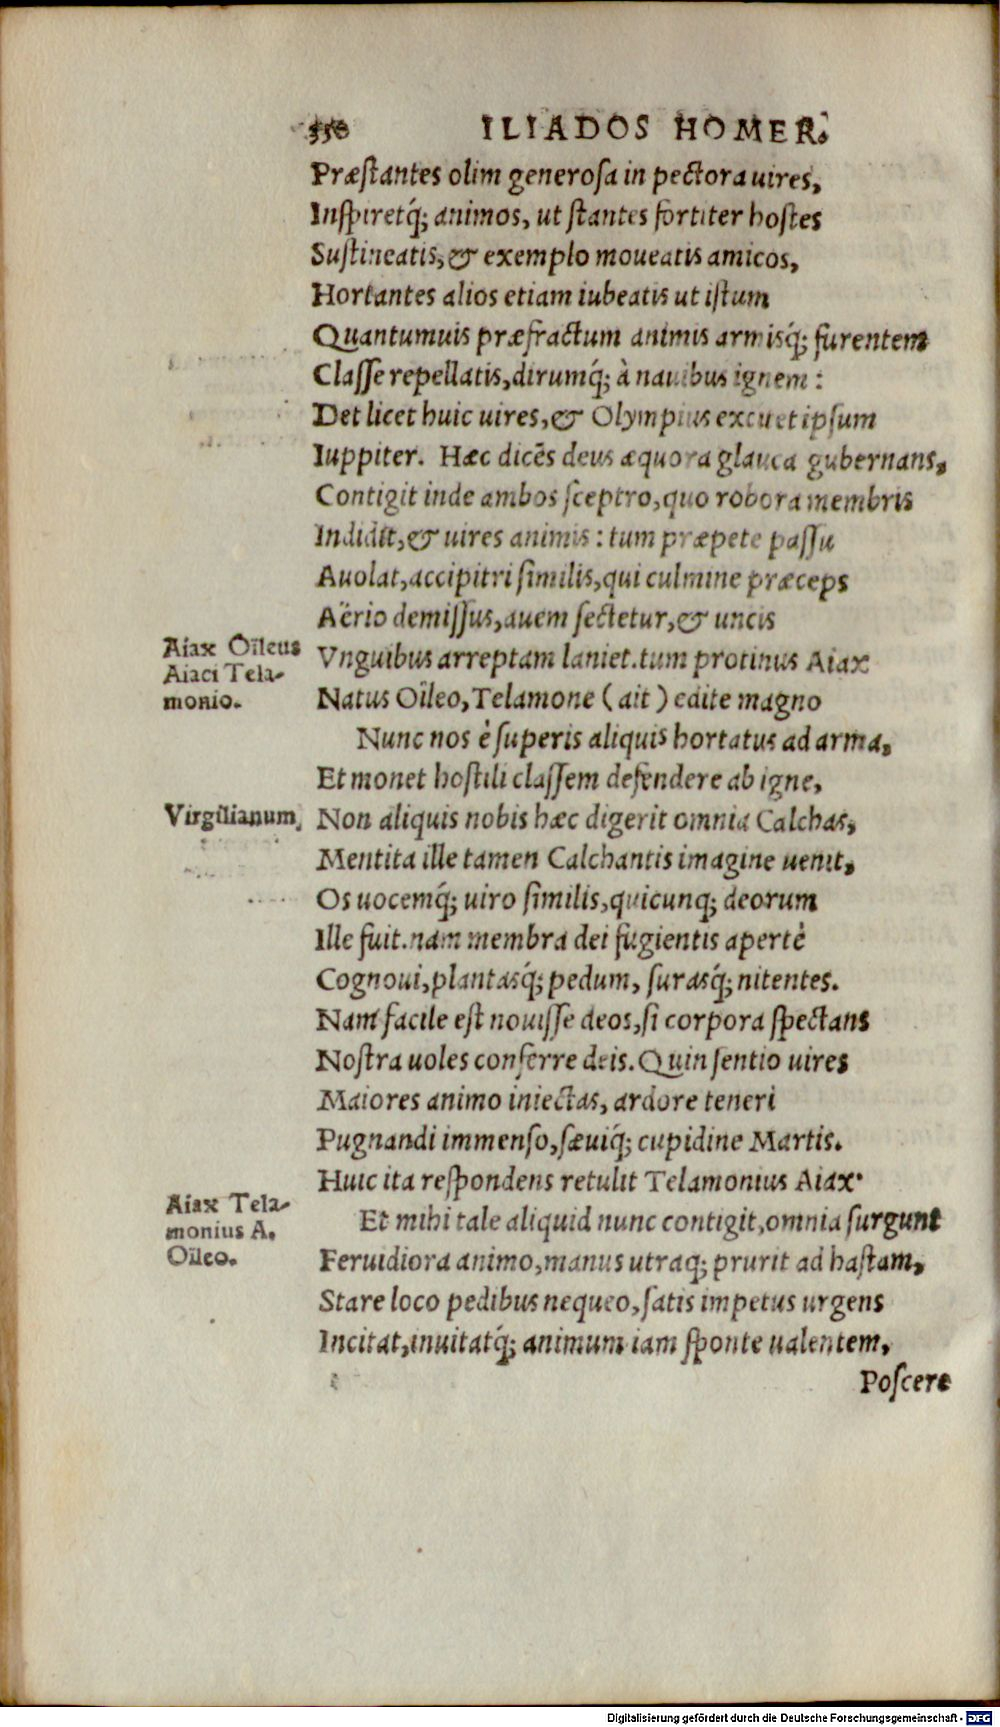 550 ILIADOS HOMERI
Præſtantes olim generoſa in pectora uires,
Inſpiretq́; animos, ut ſtantes fortiter hoſtes
Suſtineatis, & exemplo moueatis amicos,
Hortantes alios etiam iubeatis ut iſtum
Quantumuis præfractum animis armisq́; furentem
Claſſe repellatis, dirumq́; à nauibus ignem :
Det licet huic uires, & Olympius excitet ipſum
Iuppiter. Hæc dicẽs deus æquora glauca gubernans,
Contigit inde ambos ſceptro, quo robora membris
Indidit, & uires animis : tum præpete paſſu
Auolat, accipitri ſimilis, qui culmine præceps
Aërio demiſſus, auem ſectetur, & uncis
Aiax Oïleus
Aiaci Tela-
monio.
Vnguibus arreptam laniet. tum protinus Aiax
Natus Oïleo, Telamone (ait) edite magno
Nunc nos è ſuperis aliquis hortatus ad arma,
Et monet hoſtili claſſem defendere ab igne,
Virgilianum,
Non aliquis nobis hæc digerit omnia Calchas,
Mentita ille tamen Calchantis imagine uenit,
Os uocemq́; uiro ſimilis, quicunq; deorum
Ille fuit. nam membra dei fugientis apertè
Cognoui, plantasq́; pedum, ſurasq́; nitentes.
Nam facile eſt nouiſſe deos, ſi corpora ſpectans
Noſtra uoles conferre deis. Quin ſentio uires
Maiores animo iniectas, ardore teneri
Pugnandi immenſo, ſæuiq́; cupidine Martis.
Huic ita reſpondens retulit Telamonius Aiax.
Aiax Tela-
monius A.
Oïleo.
Et mihi tale aliquid nunc contigit, omnia ſurgunt
Feruidiora animo, manus utraq; prurit ad haſtam,
Stare loco pedibus nequeo, ſatis impetus urgens
Incitat, inuitatq́; animum iam ſponte ualentem,
Poſcere
Digitalisierung gefördert durch die Deutsche Forschungsgemeinschaft - DFG